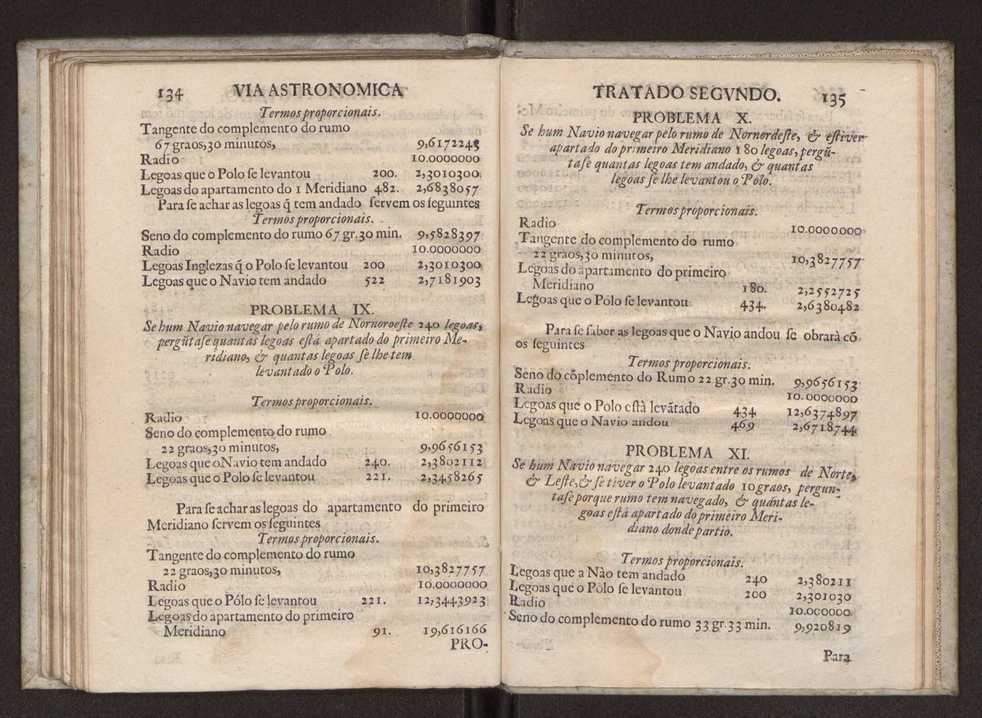 134 VIA ASTRONOMICA
Termos proporcionais.
Tangente do complemento do rumo
67 graos,30 minutos, 9,6172243
Radio 10.0000000
Legoas que o Polo se levantou 200. 2,3010300
Legoas do apartamento do 1 Meridiano 482. 2,6838057
Para se achar as legoas q̃ tem andado servem os seguintes
Termos proporcionais.
Seno do complemento do rumo 67 gr.30 min. 9,5828397
Radio 10.0000000
Legoas Inglezas q̃ o Polo se levantou 200 2,3010300
Legoas que o Navio tem andado 522 2,7181903
PROBLEMA IX.
Se hum Navio navegar pelo rumo de Nornoroeste 240 legoas,
pergũtase quantas legoas está apartado do primeiro Me-
ridiano, & quantas legoas se lhe tem
levantado o Polo.
Termos proporcionais.
Radio 10.0000000
Seno do complemento do rumo
22 graos,30 minutos, 9,9656153
Legoas que o Navio tem andado 240. 2,3802112
Legoas que o Polo se levantou 221. 2,3458265
Para se achar as legoas do apartamento do primeiro
Meridiano servem os seguintes
Termos proporcionais.
Tangente do complemento do rumo
22 graos,30 minutos, 10,3827757
Radio 10.0000000
Legoas que o Pólo se levantou 221. 12,3443923
Legoas do apartamento do primeiro
Meridiano 91. 19,616166
PRO-
TRATADO SEGVNDO. 135
PROBLEMA X.
Se hum Navio navegar pelo rumo de Nornordeste, & estiver
apartado do primeiro Meridiano 180 legoas, pergũ-
tase quantas legoas tem andado, & quantas
legoas se lhe levantou o Polo.
Termos proporcionais.
Radio 10.0000000
Tangente do complemento do rumo
22 graos,30 minutos, 10,3827757
Legoas do apartamento do primeiro
Meridiano 180. 2,2552725
Legoas que o Polo se levantou 434. 2,6380482
Para se saber as legoas que o Navio andou se obrará cõ
os seguintes
Termos proporcionais.
Seno do cõplemento do Rumo 22 gr.30 min. 9,9656153
Radio 10.0000000
Legoas que o Polo está levãtado 434 12,6374897
Legoas que o Navio andou 469 2,6718744
PROBLEMA XI.
Se hum Navio navegar 240 legoas entre os rumos de Norte,
& Leste,& se tiver o Polo levantado 10 graos, pergun-
tase porque rumo tem navegado, & quántas le-
goas está apartado do primeiro Meri-
diano donde partio.
Termos proporcionais.
Legoas que a Não tem andado 240 2,380211
Legoas que o Polo se levantou 200 2,301030
Radio 10.000000
Seno do complemento do rumo 33 gr.33 min. 9,920819
Para